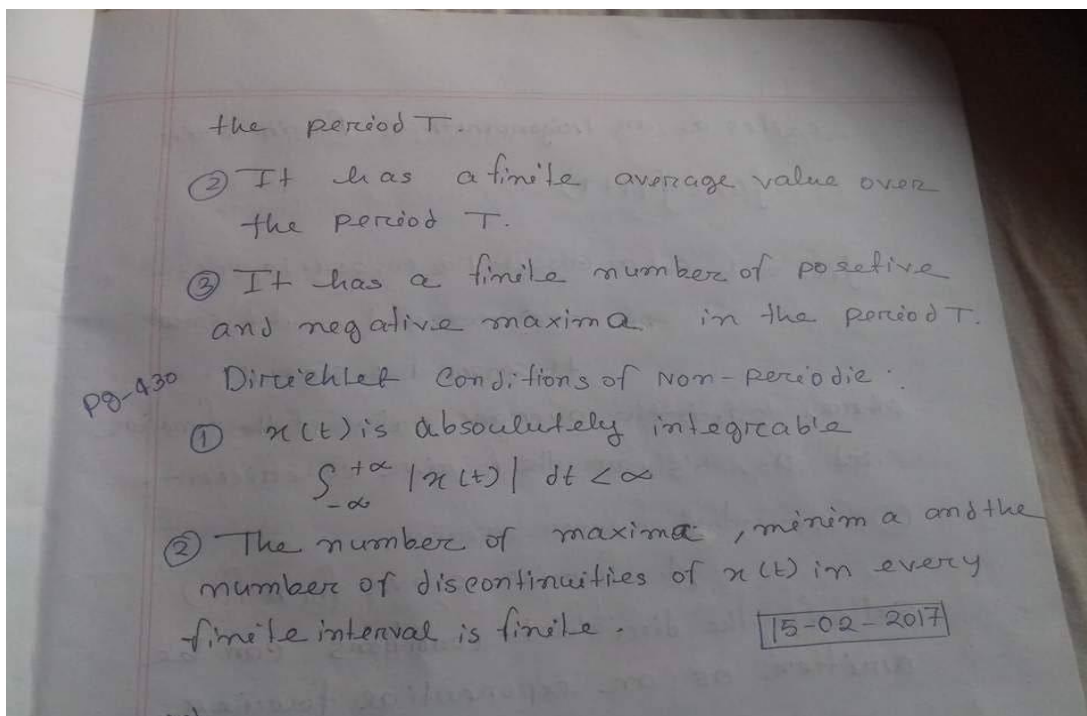 the period T.
② It has a finite average value over
the period T.
③ It has a finite number of posetive
and negative maxima in the period T.
Pg-430 Diriehlet Conditions of Non-periodic.
① x(t) is absoulutely integrable
∫_{-∞}^{+∞} |x(t)| dt < ∞
② The number of maxima, minima and the
number of discontinuities of x(t) in every
finite interval is finite.
15-02-2017